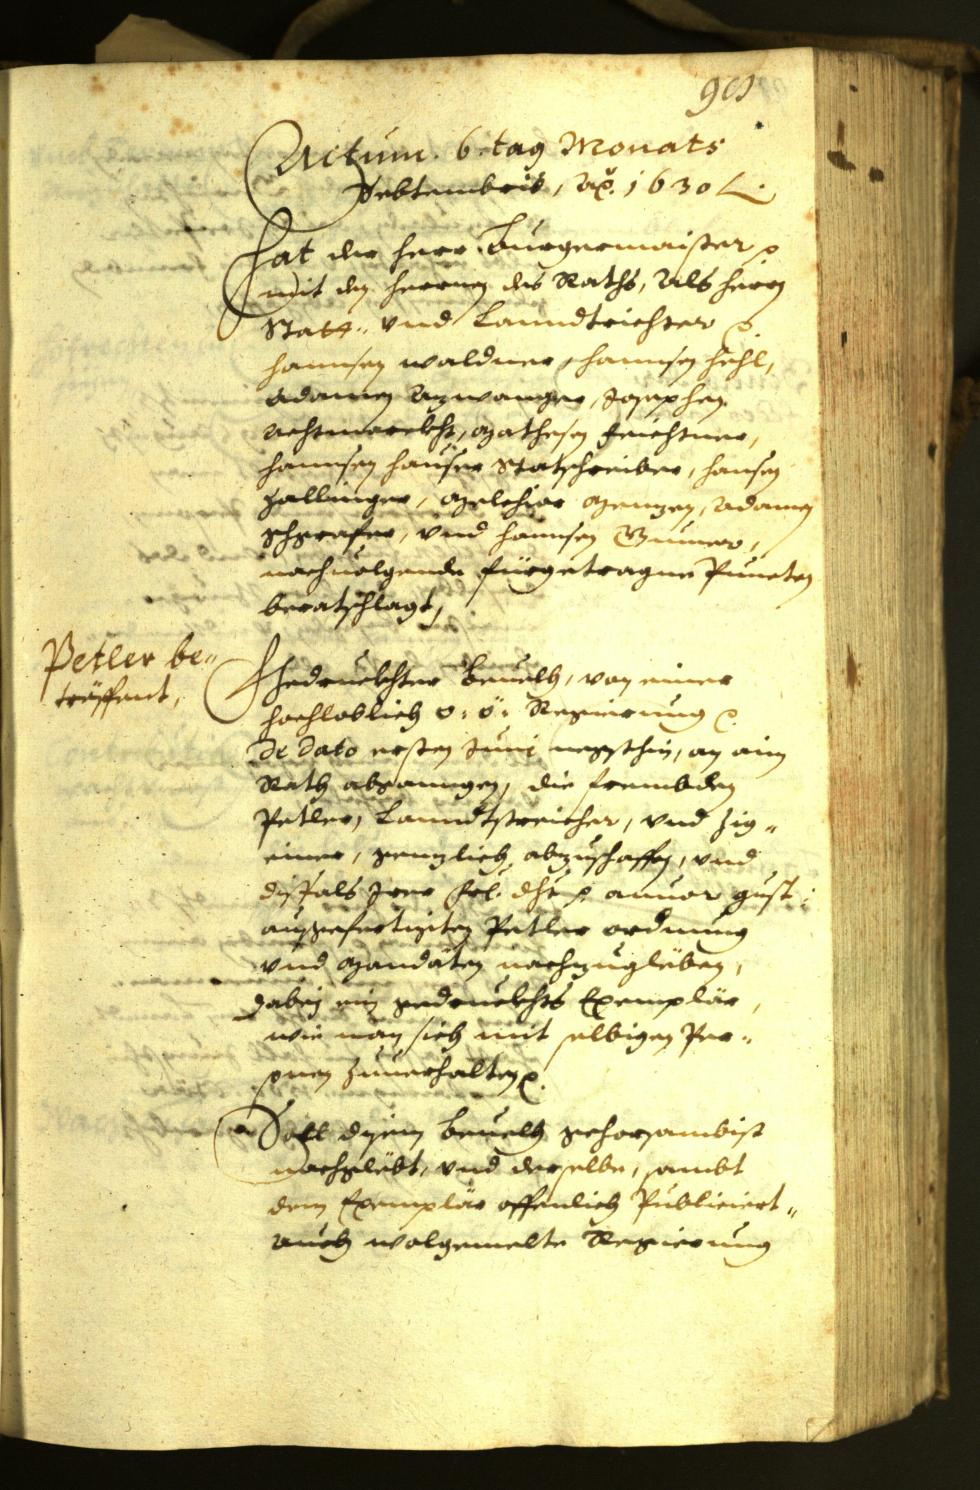 Actum. 6. tag Monats
Septembris, Aō. 1630
Hat der herr Burgermaister
mit den herren des Raths, Als herrn
Statt- vnd Lanndtrichter
Hannsen Waldner, Hannsen
Adamen Azwanger, Josephen
Achtmarckht, Mathesen Feichtner,
Hannsen Hauser Statschreiber, Hansen
Zallinger, Melchior Menzen, Adamen
vnd Hannsen
nachuolgende fürgetragne Puncten
beratschlagt,
Petler be-
treffent,
Gedruckhter Beuelh, von einer
hochloblich o: ö: Regierung
De dato ersten Juni negsthin, an ain
Rath abganngen, die frembden
Petler, Lanndtstreicher, vnd Zig-
einer, genzlich abzuschaffen, vnd
disfals Irer
aussgefertigten Petler ordnung
vnd Mandäten nachzugläben,
dabey ein gedruckhts Exemplär,
wie man sich mit selbigen Per-
sonen zuuerhalten.
Soll disem Beuelh gehorsambist
nachgläbt, vnd derselbe, sambt
dem Exemplär offenlich Publiciert-
auch wolgemelte Regierung